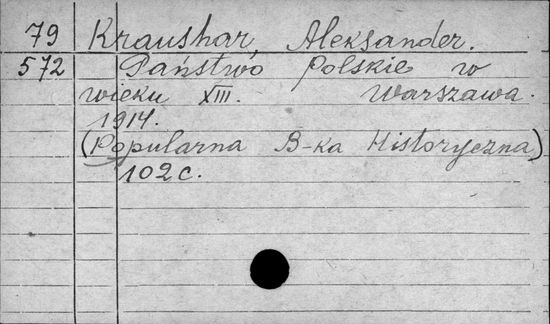 79 Kraushar, Aleksander.
572 Państwo Polskie w
wieku XIII. Warszawa.
1914.
(Popularna B-ka Historyczna)
102 c.